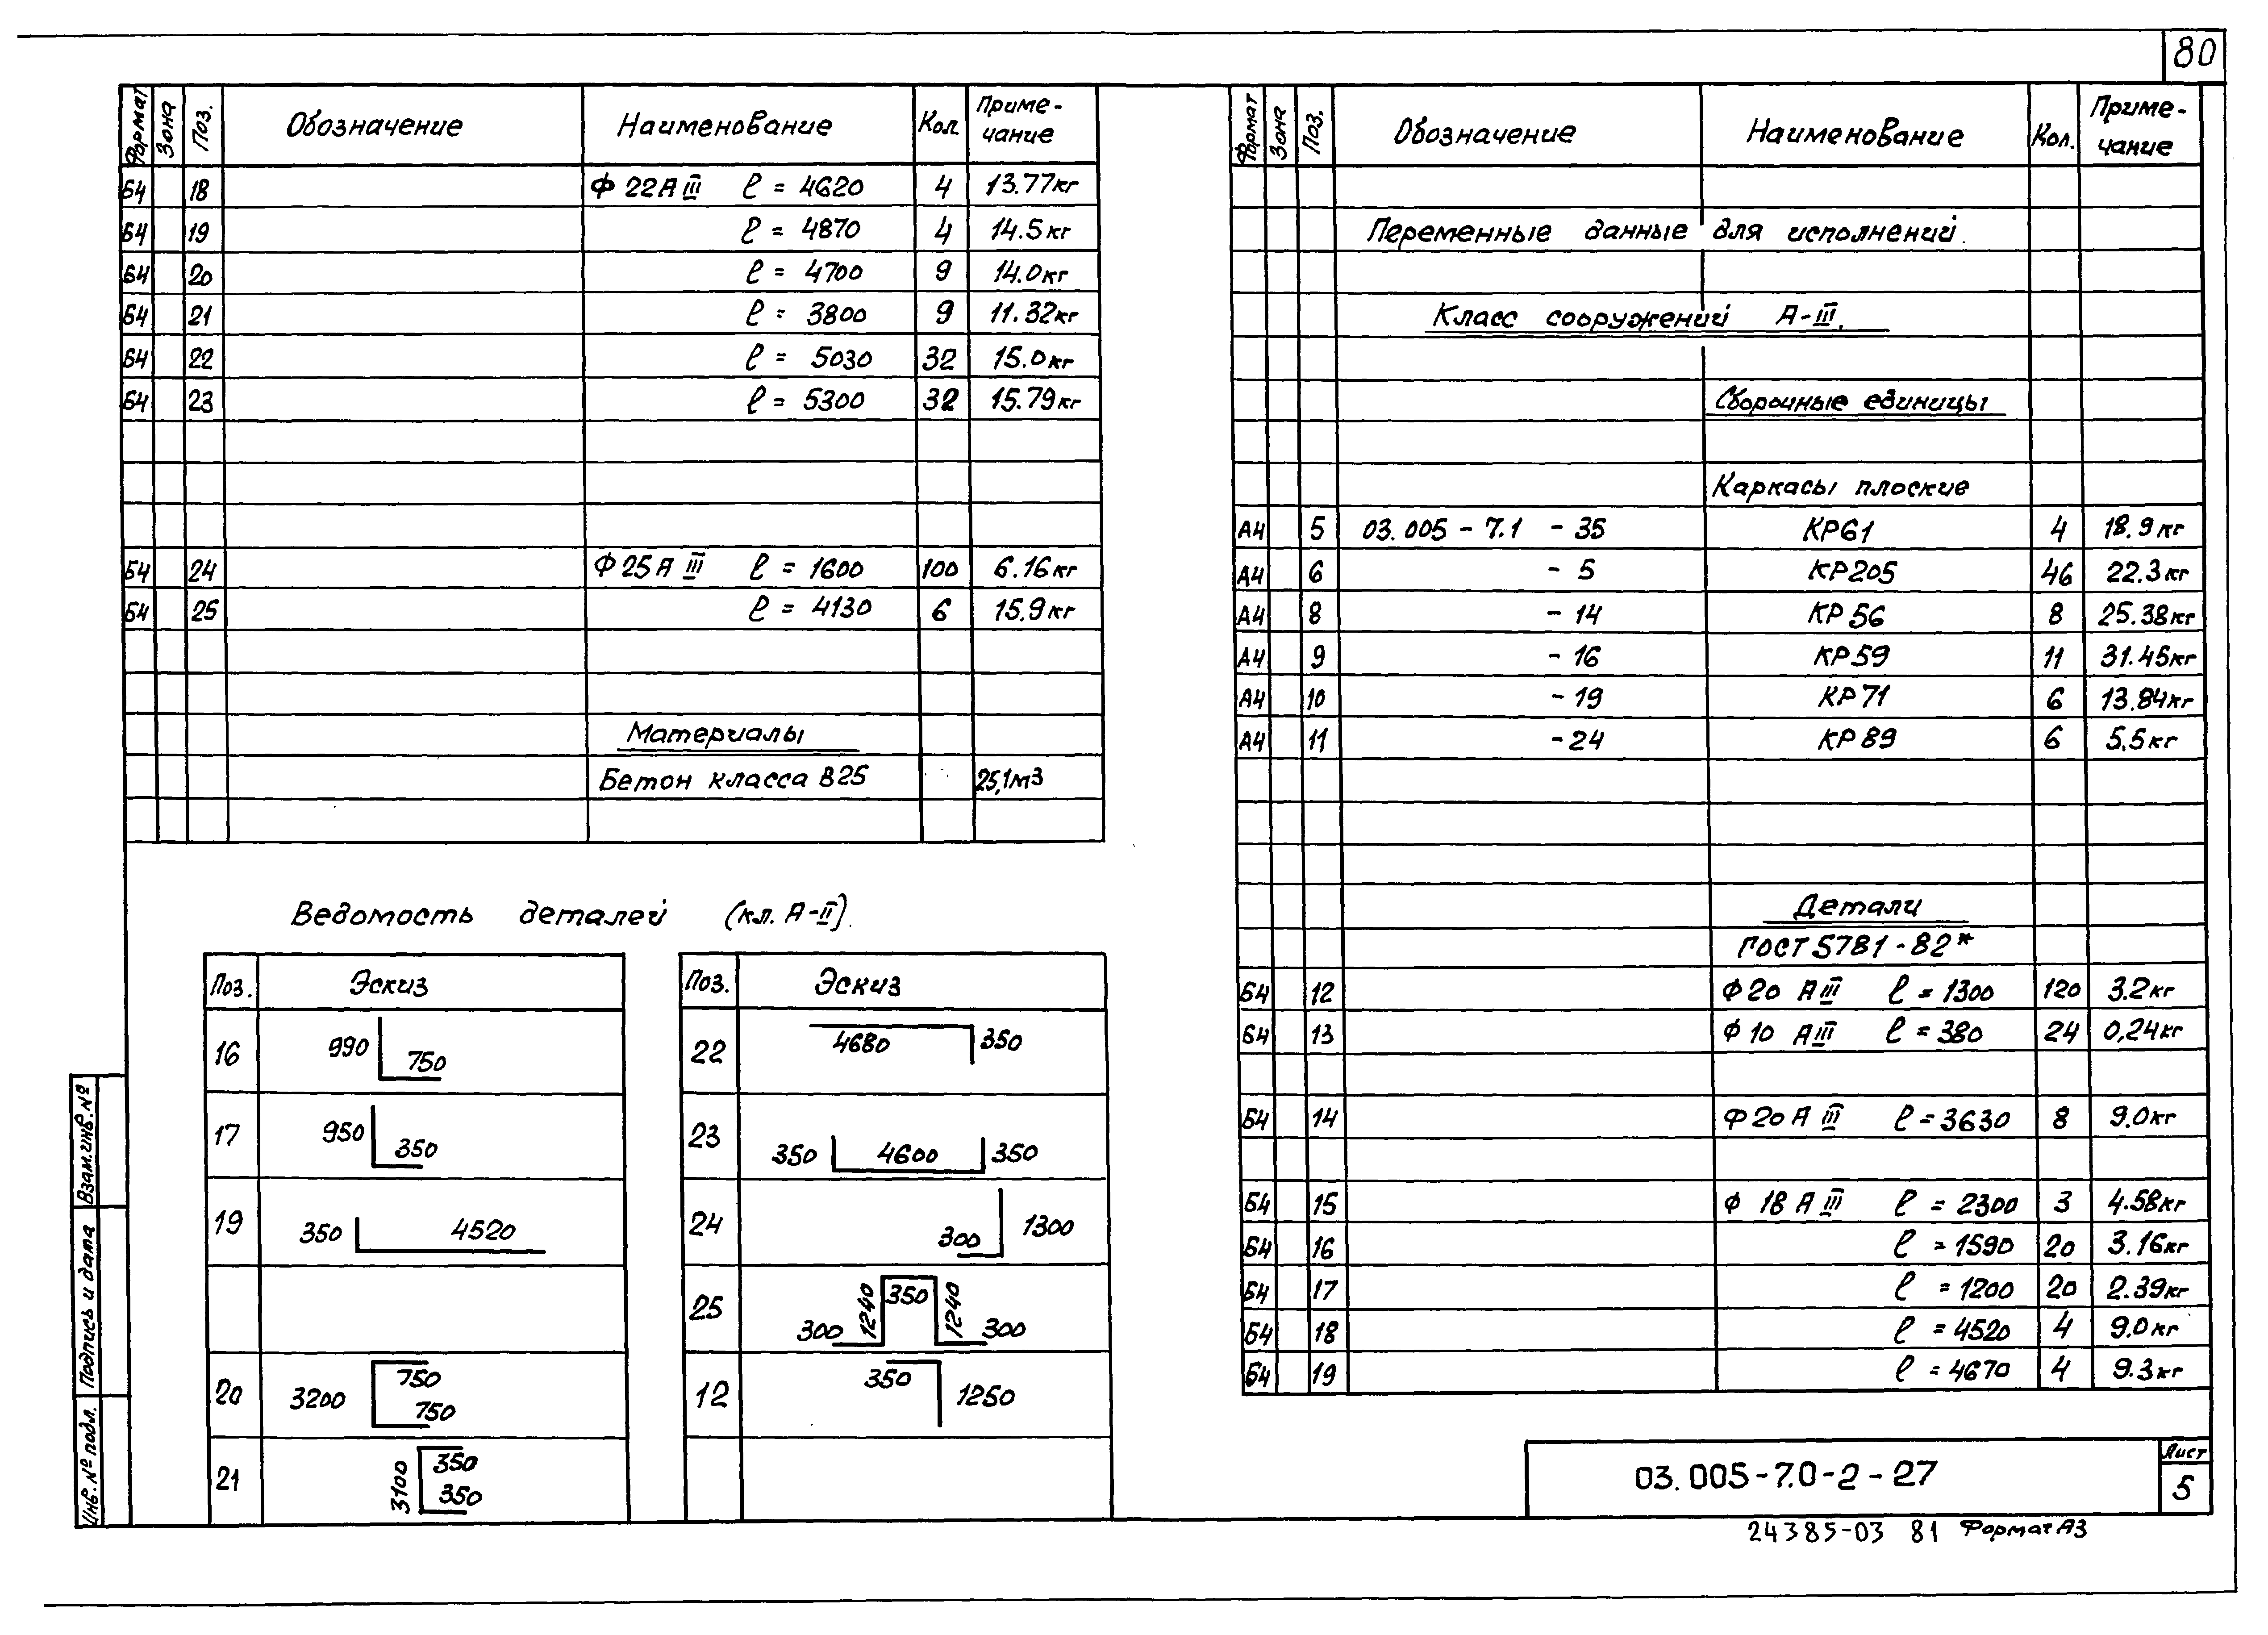 80
Формат Зона Поз. Обозначение Наименование Кол. Приме-чание
Б4 18 Ф 22А III ℓ = 4620 4 13.77кг
Б4 19 ℓ = 4870 4 14.5кг
Б4 20 ℓ = 4700 9 14.0кг
Б4 21 ℓ = 3800 9 11.32кг
Б4 22 ℓ = 5030 32 15.0кг
Б4 23 ℓ = 5300 32 15.79кг
Б4 24 Ф 25 А III ℓ = 1600 100 6.16кг
Б4 25 ℓ = 4130 6 15.9кг
Материалы
Бетон класса В25 25,1м3
Ведомость деталей (кл. А-II).
Поз. Эскиз
16 990 750
17 950 350
19 350 4520
20 3200 750 750
21 3100 350 350
Поз. Эскиз
22 4680 350
23 350 4600 350
24 300 1300
25 300 1240 350 1240 300
12 350 1250
Формат Зона Поз. Обозначение Наименование Кол. Приме-чание
Переменные данные для исполнений.
Класс сооружений А-III.
Сборочные единицы
Каркасы плоские
А4 5 03.005 - 7.1 - 35 КР61 4 18.9кг
А4 6 - 5 КР205 46 22.3кг
А4 8 - 14 КР56 8 25.38кг
А4 9 - 16 КР59 11 31.45кг
А4 10 - 19 КР71 6 13.84кг
А4 11 - 24 КР89 6 5.5кг
Детали
ГОСТ 5781-82*
Б4 12 Ф 20 А III ℓ = 1300 120 3.2кг
Б4 13 Ф 10 А III ℓ = 380 24 0,24кг
Б4 14 Ф 20 А III ℓ = 3630 8 9.0кг
Б4 15 Ф 18 А III ℓ = 2300 3 4.58кг
Б4 16 ℓ = 1590 20 3.16кг
Б4 17 ℓ = 1200 20 2.39кг
Б4 18 ℓ = 4520 4 9.0кг
Б4 19 ℓ = 4670 4 9.3кг
Взам.инв.№
Подпись и дата
Инв. № подл.
03.005-7.0-2-27
Лист
5
24385-03 81 Формат А3